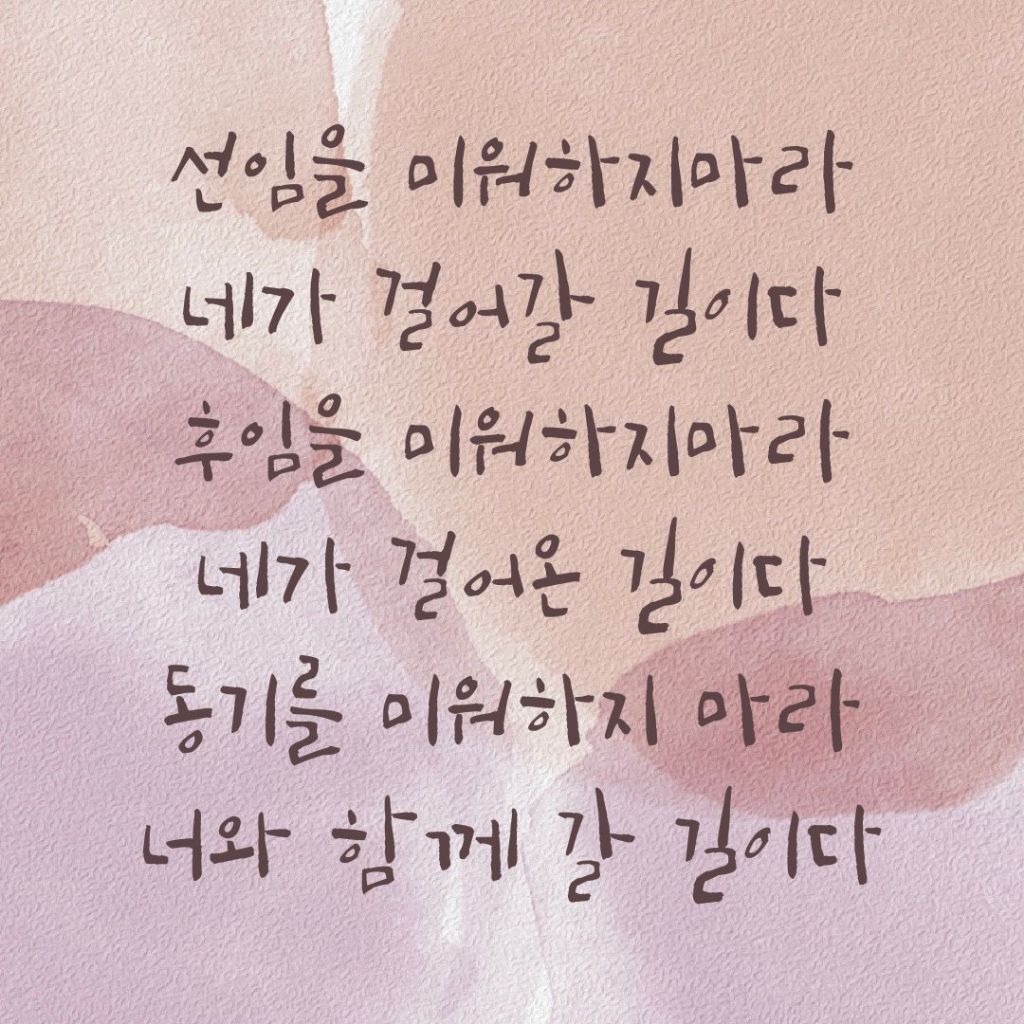 선임을 미워하지마라
네가 걸어갈 길이다
후임을 미워하지마라
네가 걸어온 길이다
동기를 미워하지 마라
너와 함께 갈 길이다